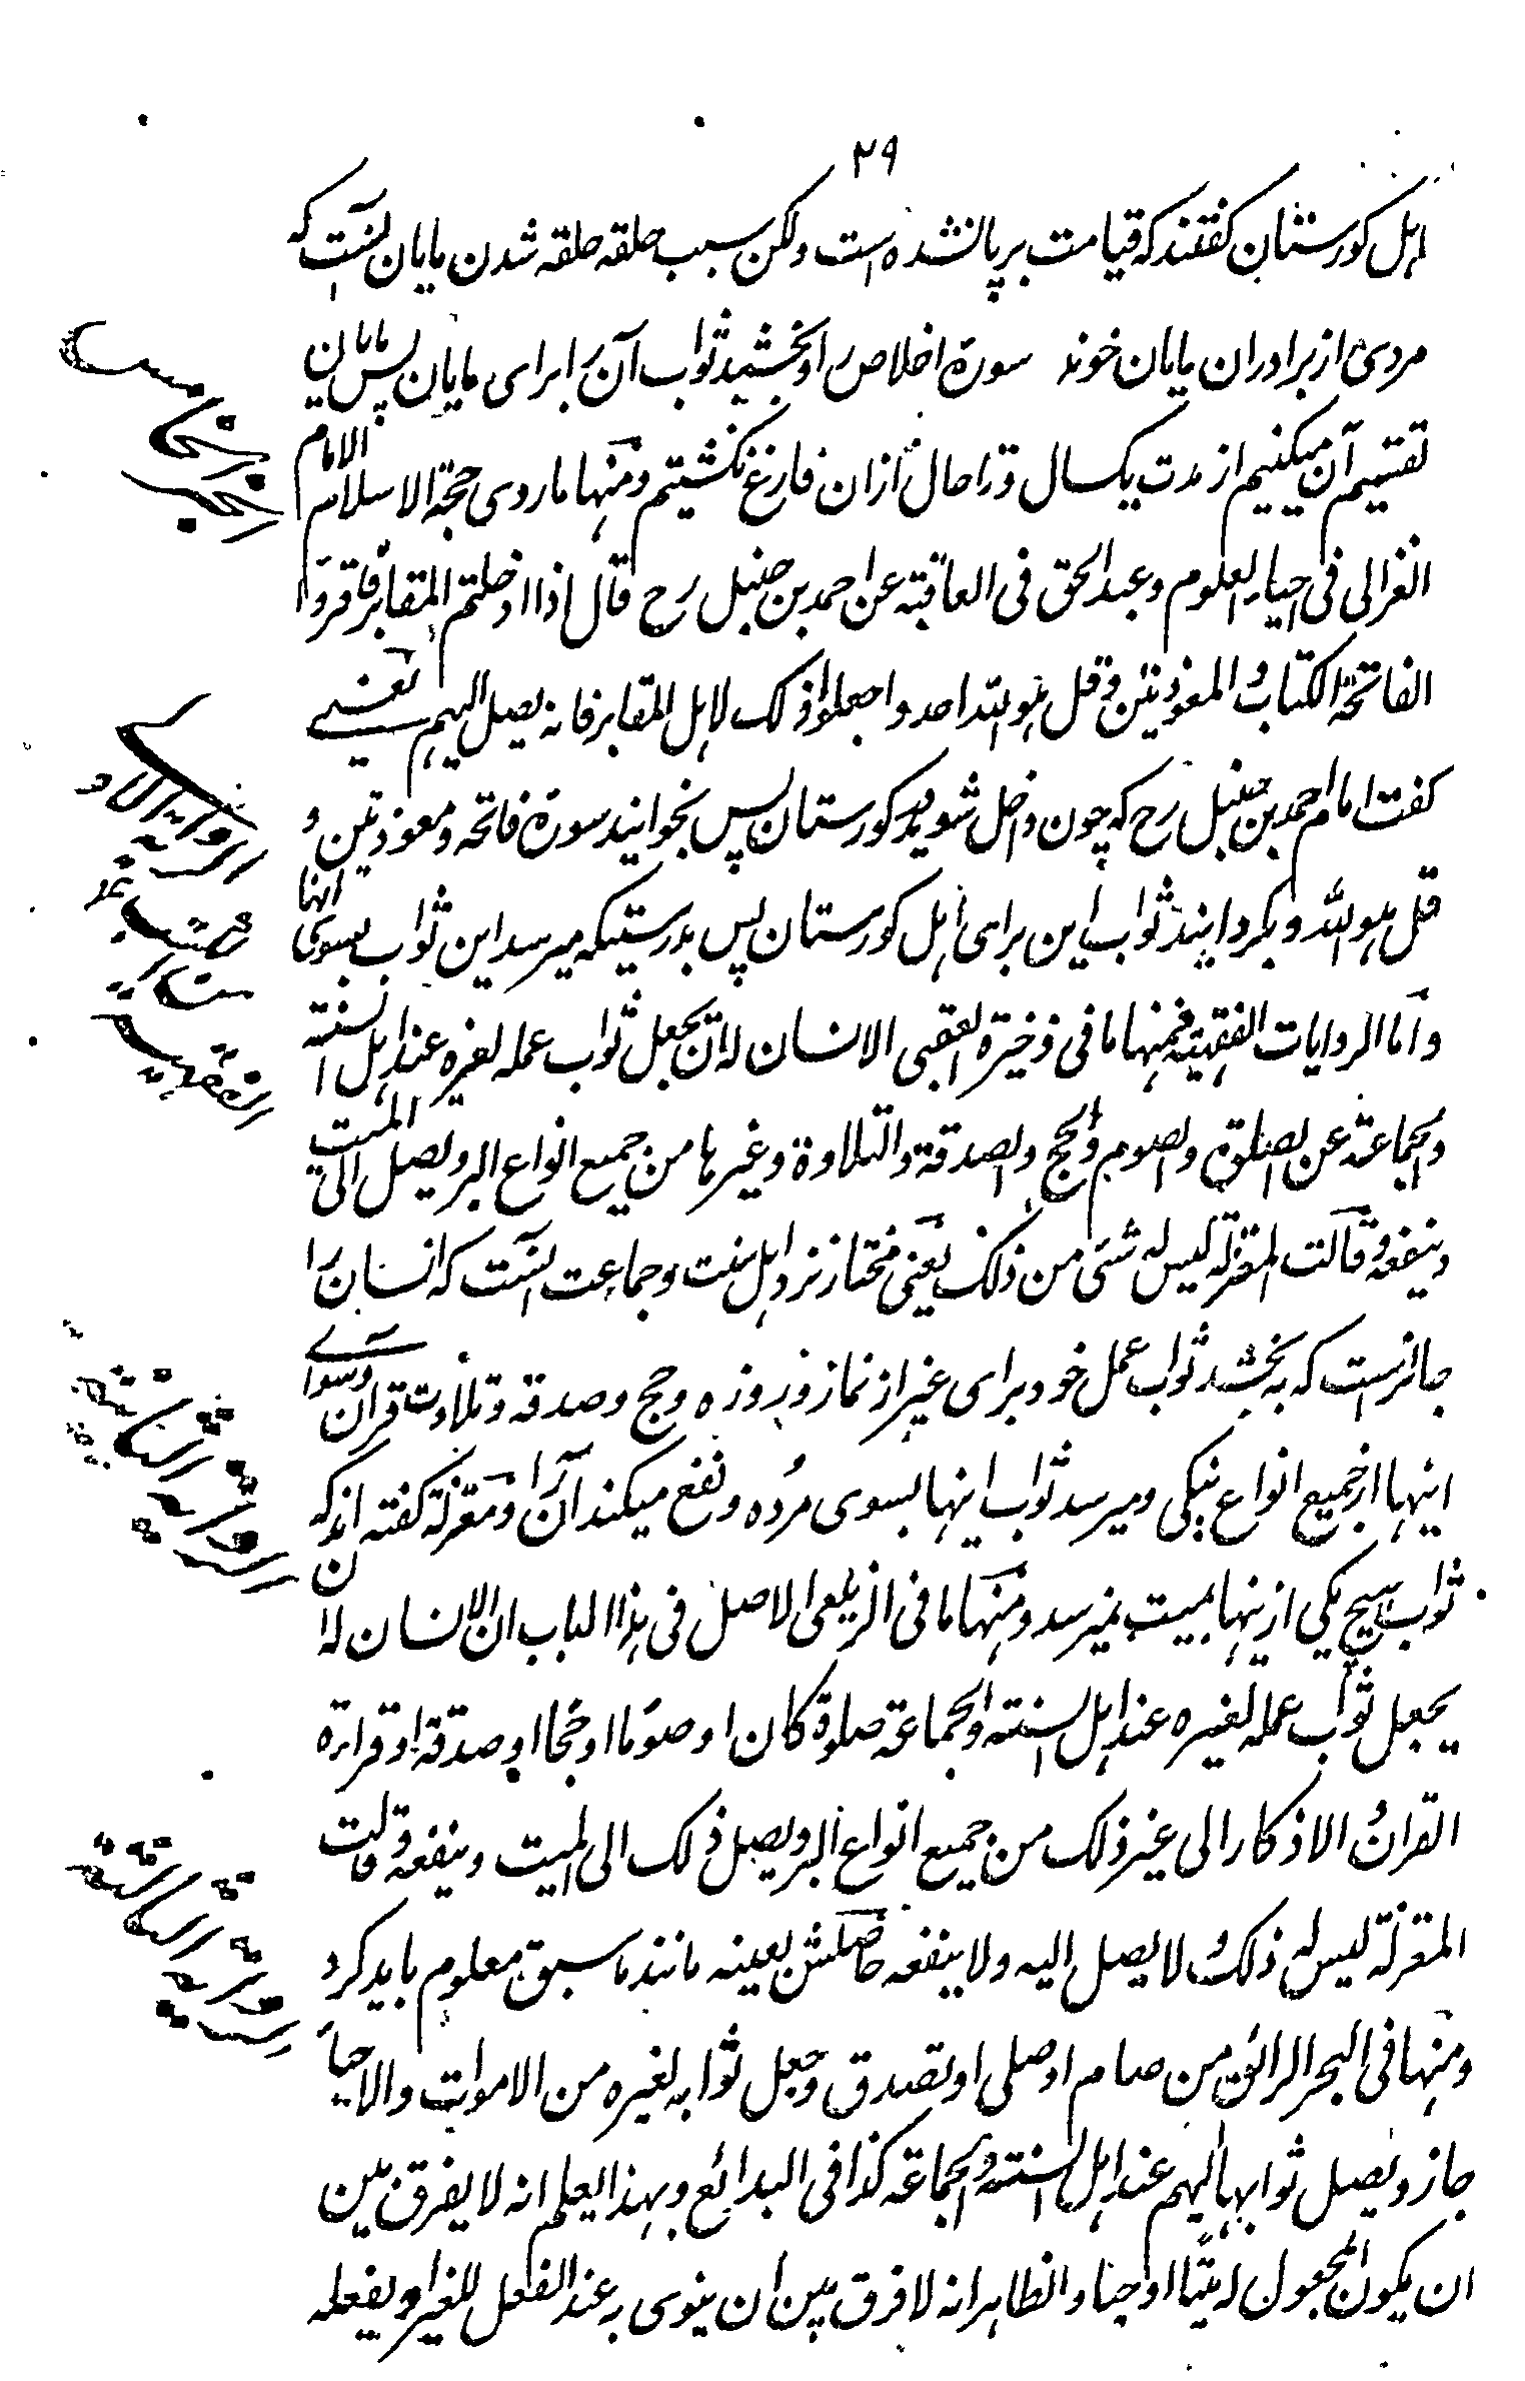 ۲۹
اہل کورستان گفتند کہ قیامت برپا نشدہ است ولکن سبب حلقہ حلقہ شدن مایان اینست کہ
مردی از برادران مایان خوند سورۃ اخلاص را و بخشید ثواب آن را برای مایان پس مایان
تقسیم آن میکنیم از مدت یکسال و تا حال ازان فارغ نگشتیم ومنہا ما روی حجۃ الاسلام الامام
الغزالی فی احیاء العلوم وعبد الحق فی العاقبۃ عن احمد بن حنبل رح قال اذا دخلتم المقابر فاقرؤا
الفاتحۃ الکتاب والمعوذتین وقل ہو اللہ احد واجعلوا ذلک لاہل المقابر فانہ یصل الیہم یعنے
گفت امام احمد بن حنبل رح کہ چون داخل شوید بگورستان پس بخوانید سورۃ فاتحہ ومعوذتین و
قل ہو اللہ و بگردانید ثواب این برای اہل کورستان پس بدرستیکہ میرسد این ثواب بسوی انہا
واما الروایات الفقہیۃ فمنہا ما فی ذخیرۃ العقبی الانسان لہ ان یجعل ثواب عملہ لغیرہ عند اہل السنتہ
والجماعۃ عن الصلوۃ والصوم والحج والصدقۃ والتلاوۃ وغیرہا من جمیع انواع البر ویصل الی المیت
وینفعہ وقالت المعتزلہ لیس لہ شئی من ذلک یعنی مختار نزد اہل سنت وجماعت اینست کہ انسان را
جائز است کہ بہ بخشد ثواب عمل خود برای غیر از نماز و روزہ و حج و صدقہ و تلاوت قران وسوائے
اینہا از جمیع انواع نیکی و میرسد ثواب اینہا بسوی مُردہ و نفع میکند آن را ومعتزلۃ گفتہ اند کہ
ثواب ہیچ یکی ازینہا بمیت نمیرسد ومنہا ما فی الزیلعی الاصل فی ہذا الباب ان الانسان لہ ان
یجعل ثواب عملہ لغیرہ عند اہل السنتہ والجماعۃ صلوۃ کان او صومًا او حجًا او صدقۃ او قراءۃ
القران والاذکار الی غیر ذلک من جمیع انواع البر ویصل ذلک الی المیت وینفعہ وقالت
المعتزلۃ لیس لہ ذلک ولا یصل الیہ ولا ینفعہ حاصلش بعینہ مانند ما سبق معلوم باید کرد
ومنہا فی البحر الرائق من صام او صلی او تصدق وجعل ثوابہ لغیرہ من الاموات والاحیاء
جاز ویصل ثوابہا الیہم عند اہل السنتہ والجماعۃ کذا فی البدائع وبہذا یعلم انہ لا یفرق بین
ان یکون المجعول لہ میتًا او حیًا والظاہر انہ لا فرق بین ان ینوی بہ عند الفعل للغیر او یفعلہ
الخبر الخامس
الروایۃ الاولے
الفقہیۃ
الروایۃ الثانیۃ
الروایۃ الثالثۃ